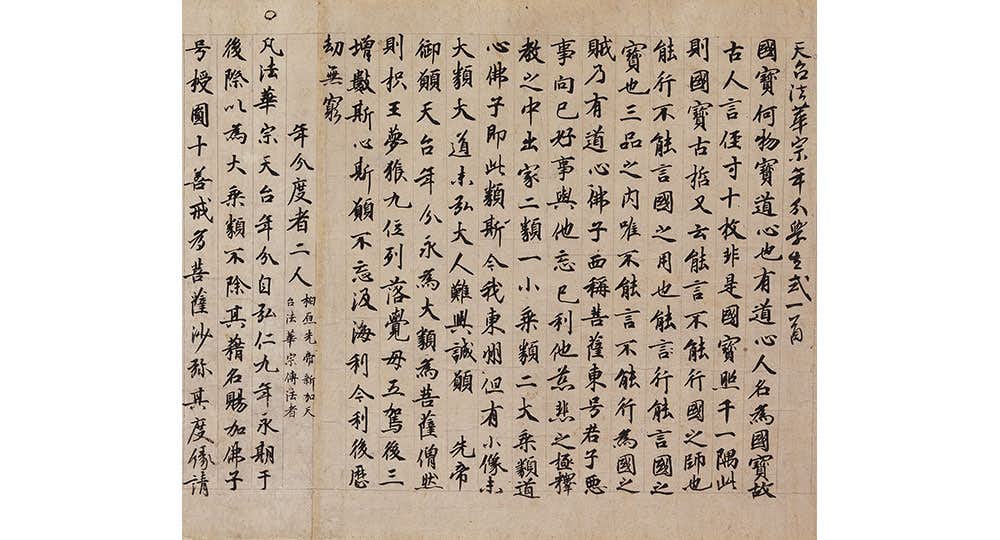 天台法華宗年分學生式一首
國寶何物寶道心也有道心人名為國寶故
古人言徑寸十枚非是國寶照千一隅此
則國寶古哲又云能言不能行國之師也
能行不能言國之用也能行能言國之
寶也三品之內唯不能言不能行為國之
賊乃有道心佛子西稱菩薩東号君子惡
事向己好事與他忘己利他慈悲之極釋
教之中出家二類一小乘類二大乘類道
心佛子即此類斯今我東州但有小像未
大類大道未弘大人難興誠願 先帝
御願天台年分永為大類為菩薩僧然
則枳王夢猴九位列落覺母五駕後三
增數斯心斯願不忘汲海利今利後歷
劫無窮
年分度者二人
柏原先帝新加天
台法華宗傳法者
〇凡法華宗天台年分自弘仁九年永期于
後際以為大乘類不除其籍名賜加佛子
号授圓十善戒為菩薩沙弥其度縁請